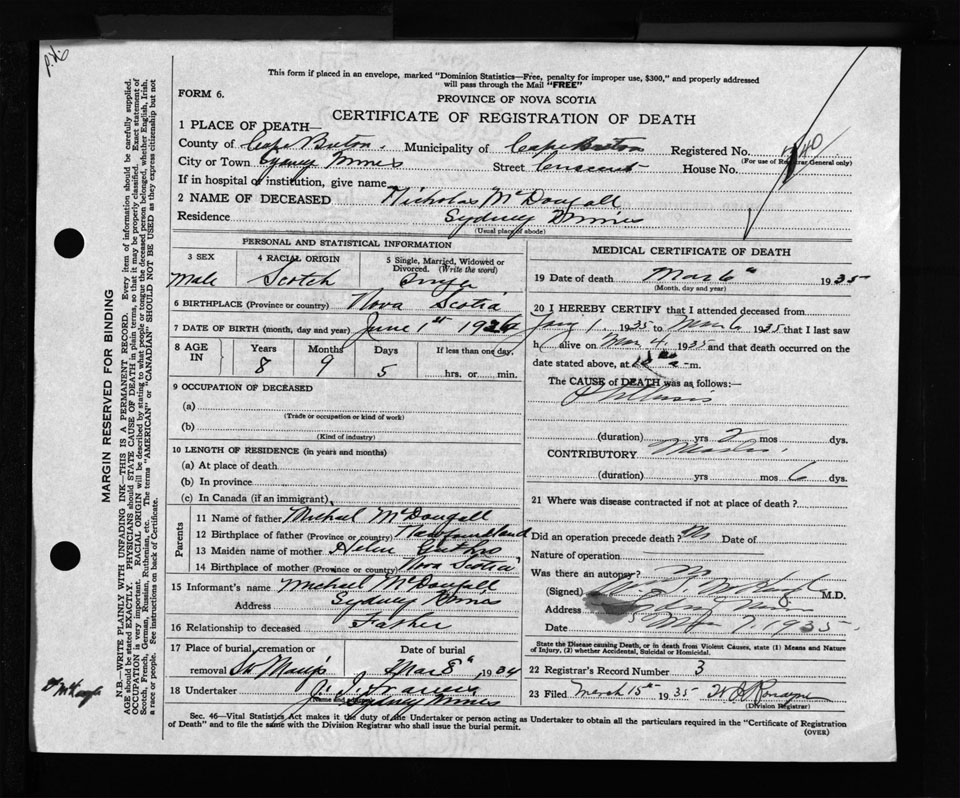 This form if placed in an envelope, marked "Dominion Statistics—Free, penalty for improper use, $300," and properly addressed
will pass through the Mail "FREE"
FORM 6.
PROVINCE OF NOVA SCOTIA
CERTIFICATE OF REGISTRATION OF DEATH
1 PLACE OF DEATH—
County of Cape Breton. Municipality of Cape Breton Registered No.
(For use of Registrar General only)
City or Town Sydney Mines Street Crescent House No.
If in hospital or institution, give name
2 NAME OF DECEASED Nicholas McDougall
Residence Sydney Mines
(Usual place of abode)
PERSONAL AND STATISTICAL INFORMATION
3 SEX 4 RACIAL ORIGIN 5 Single, Married, Widowed or Divorced. (Write the word)
Male Scotch Single
6 BIRTHPLACE (Province or country) Nova Scotia
7 DATE OF BIRTH (month, day and year) June 1st
8 AGE IN Years Months Days If less than one day,
8 9 5 hrs. or min.
9 OCCUPATION OF DECEASED
(a)
(Trade or occupation or kind of work)
(b)
(Kind of industry)
10 LENGTH OF RESIDENCE (in years and months)
(a) At place of death
(b) In province
(c) In Canada (if an immigrant)
Parents
11 Name of father Michael McDougall
12 Birthplace of father (Province or country) Newfoundland
13 Maiden name of mother Helen Guthro
14 Birthplace of mother (Province or country) Nova Scotia
15 Informant's name Michael McDougall
Address Sydney Mines
16 Relationship to deceased Father
17 Place of burial, cremation or removal Date of burial
St Mary's Mar 8th 1934
18 Undertaker
Sydney Mines
MEDICAL CERTIFICATE OF DEATH
19 Date of death Mar 6th 1935
(Month, day and year)
20 I HEREBY CERTIFY that I attended deceased from
Jany 1. 1935 to Mar 6 1935 that I last saw
h alive on Mar 4, 1935 and that death occurred on the
date stated above, at m.
The CAUSE of DEATH was as follows:—
Phthisis
(duration) yrs 2 mos dys.
CONTRIBUTORY Measles.
(duration) yrs mos 6 dys.
21 Where was disease contracted if not at place of death?
Did an operation precede death? No Date of
Nature of operation
Was there an autopsy? No
(Signed) M.D.
Address Sydney Mines
Date Mar 7. 1935
State the Disease causing Death, or in death from Violent Causes, state (1) Means and Nature
of Injury, (2) whether Accidental, Suicidal or Homicidal.
22 Registrar's Record Number 3
23 Filed March 15th 1935
(Division Registrar)
Sec. 46—Vital Statistics Act makes it the duty of the Undertaker or person acting as Undertaker to obtain all the particulars required in the "Certificate of Registration
of Death" and to file the same with the Division Registrar who shall issue the burial permit.
(OVER)
MARGIN RESERVED FOR BINDING
N.B.—WRITE PLAINLY WITH UNFADING INK—THIS IS A PERMANENT RECORD. Every item of information should be carefully supplied.
AGE should be stated EXACTLY. PHYSICIANS should STATE CAUSE OF DEATH in plain terms, so that it may be properly classified. Exact statement of
OCCUPATION is very important. RACIAL ORIGIN will be described by stating to what people or tongue the deceased person belonged, whether English, Irish,
Scotch, French, German, Russian, Ruthenian, etc. The terms "AMERICAN" or "CANADIAN" SHOULD NOT BE USED as they express citizenship but not
a race or people. See instructions on back of Certificate.